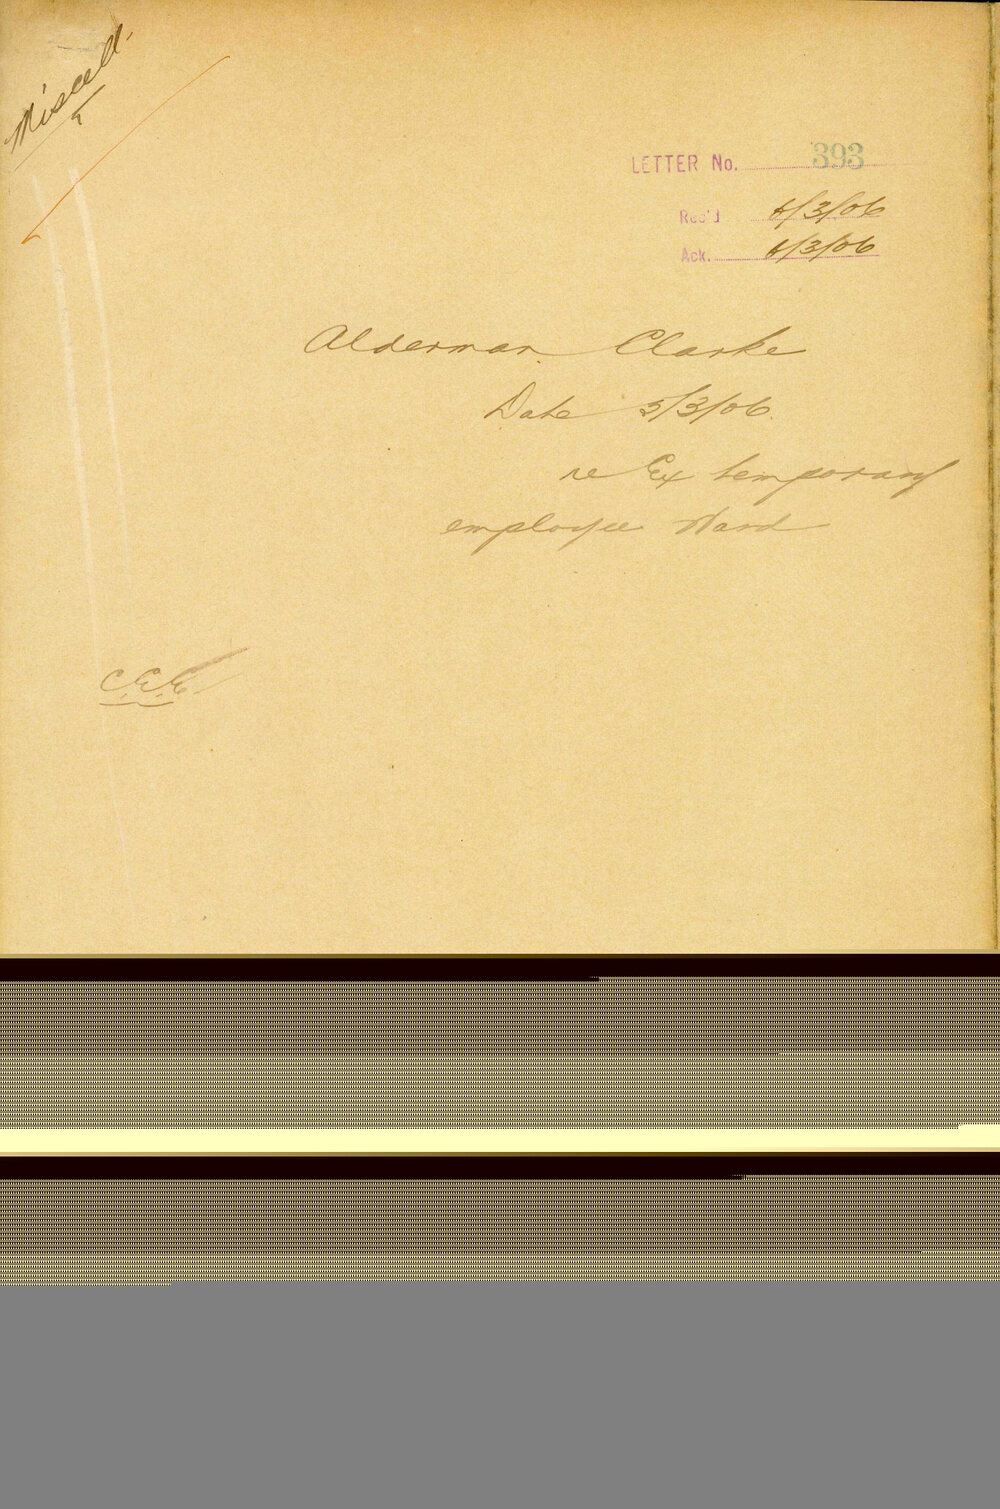 Miscell.
LETTER No. 393
Rec'd 6/3/06
Ack. 6/3/06
Alderman Clarke
Date 5/3/06.
re Ex temporary
employee Ward
C.E.E.